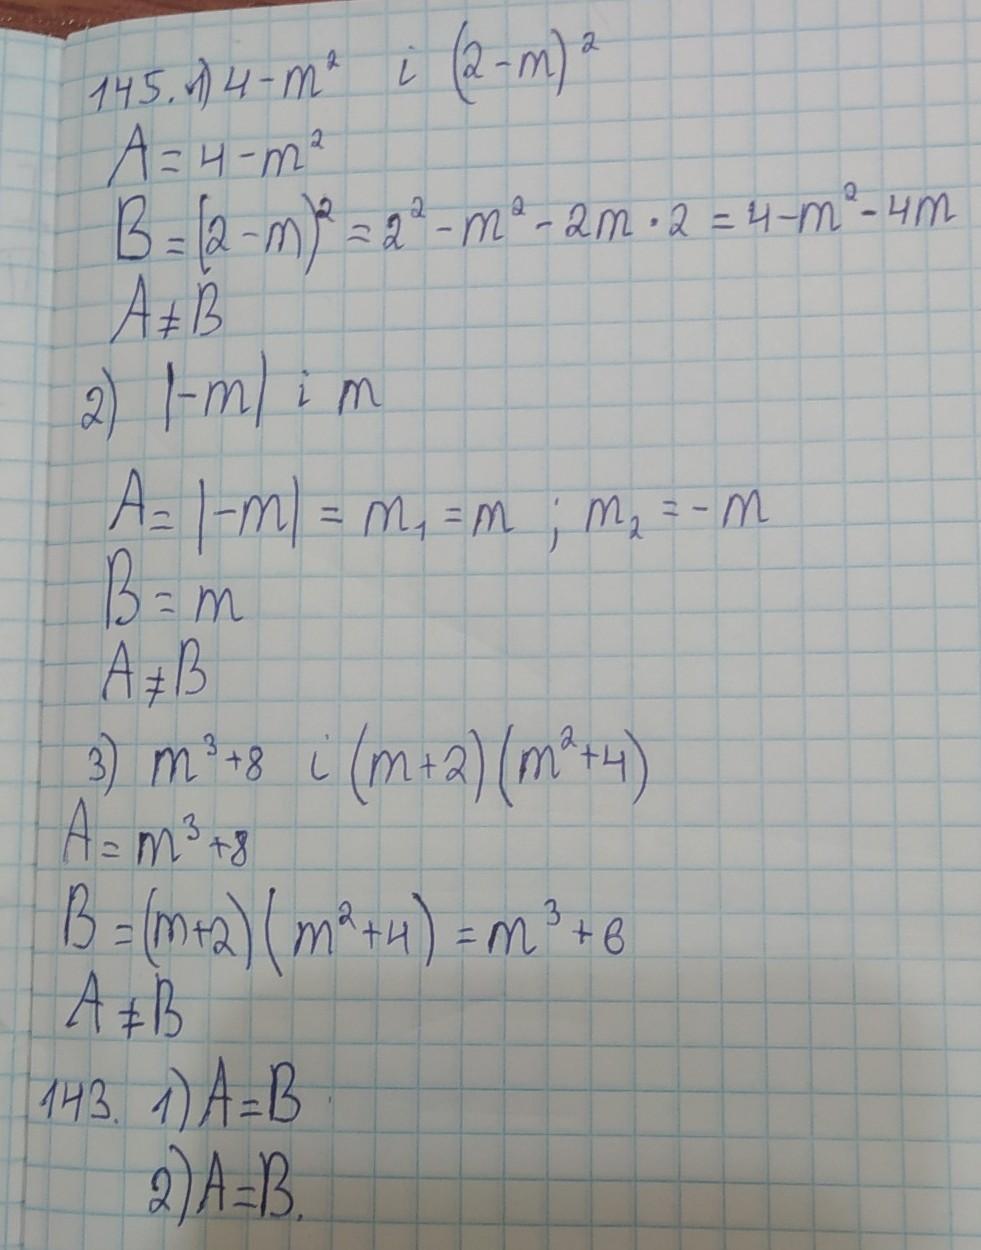 145. 1) 4-m² i (2-m)²
A = 4-m²
B = (2-m)² = 2² - m² - 2m · 2 = 4-m²-4m
A ≠ B
2) |-m| i m
A = |-m| = m₁ = m ; m₂ = -m
B = m
A ≠ B
3) m³+8 i (m+2)(m²+4)
A = m³+8
B = (m+2)(m²+4) = m³+6
A ≠ B
143. 1) A=B
2) A=B.